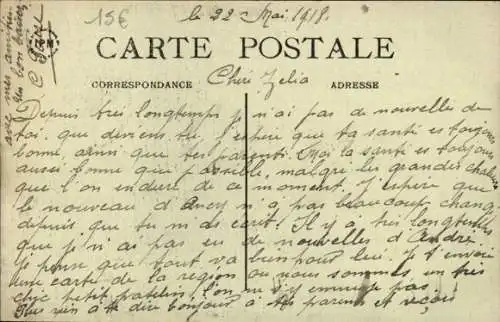 15€
le 22 Mai 1918.
CARTE POSTALE
CORRESPONDANCE
ADRESSE
Chère Zélia
Depuis très longtemps je n'ai pas de nouvelles de
toi, que deviens tu. J'espère que ta santé est toujours
bonne, ainsi que tes parents. Moi la santé est toujours
aussi bonne que possible, malgré les grandes chaleurs
que l'on endure de ce moment. J'espère que
le nouveau d' n'a pas beaucoup changé
depuis que tu m'as écrit. Il y a très longtemps
que je n'ai pas eu de nouvelles d'André
je pense que tout va bien pour lui. Je t'envoie
une carte de la région où nous sommes, un très
chic petit patelin, l'on ne s'y ennuye pas.
Plus rien à te dire bonjour à tes parents et reçois
avec mes amitiés
un bon baiser